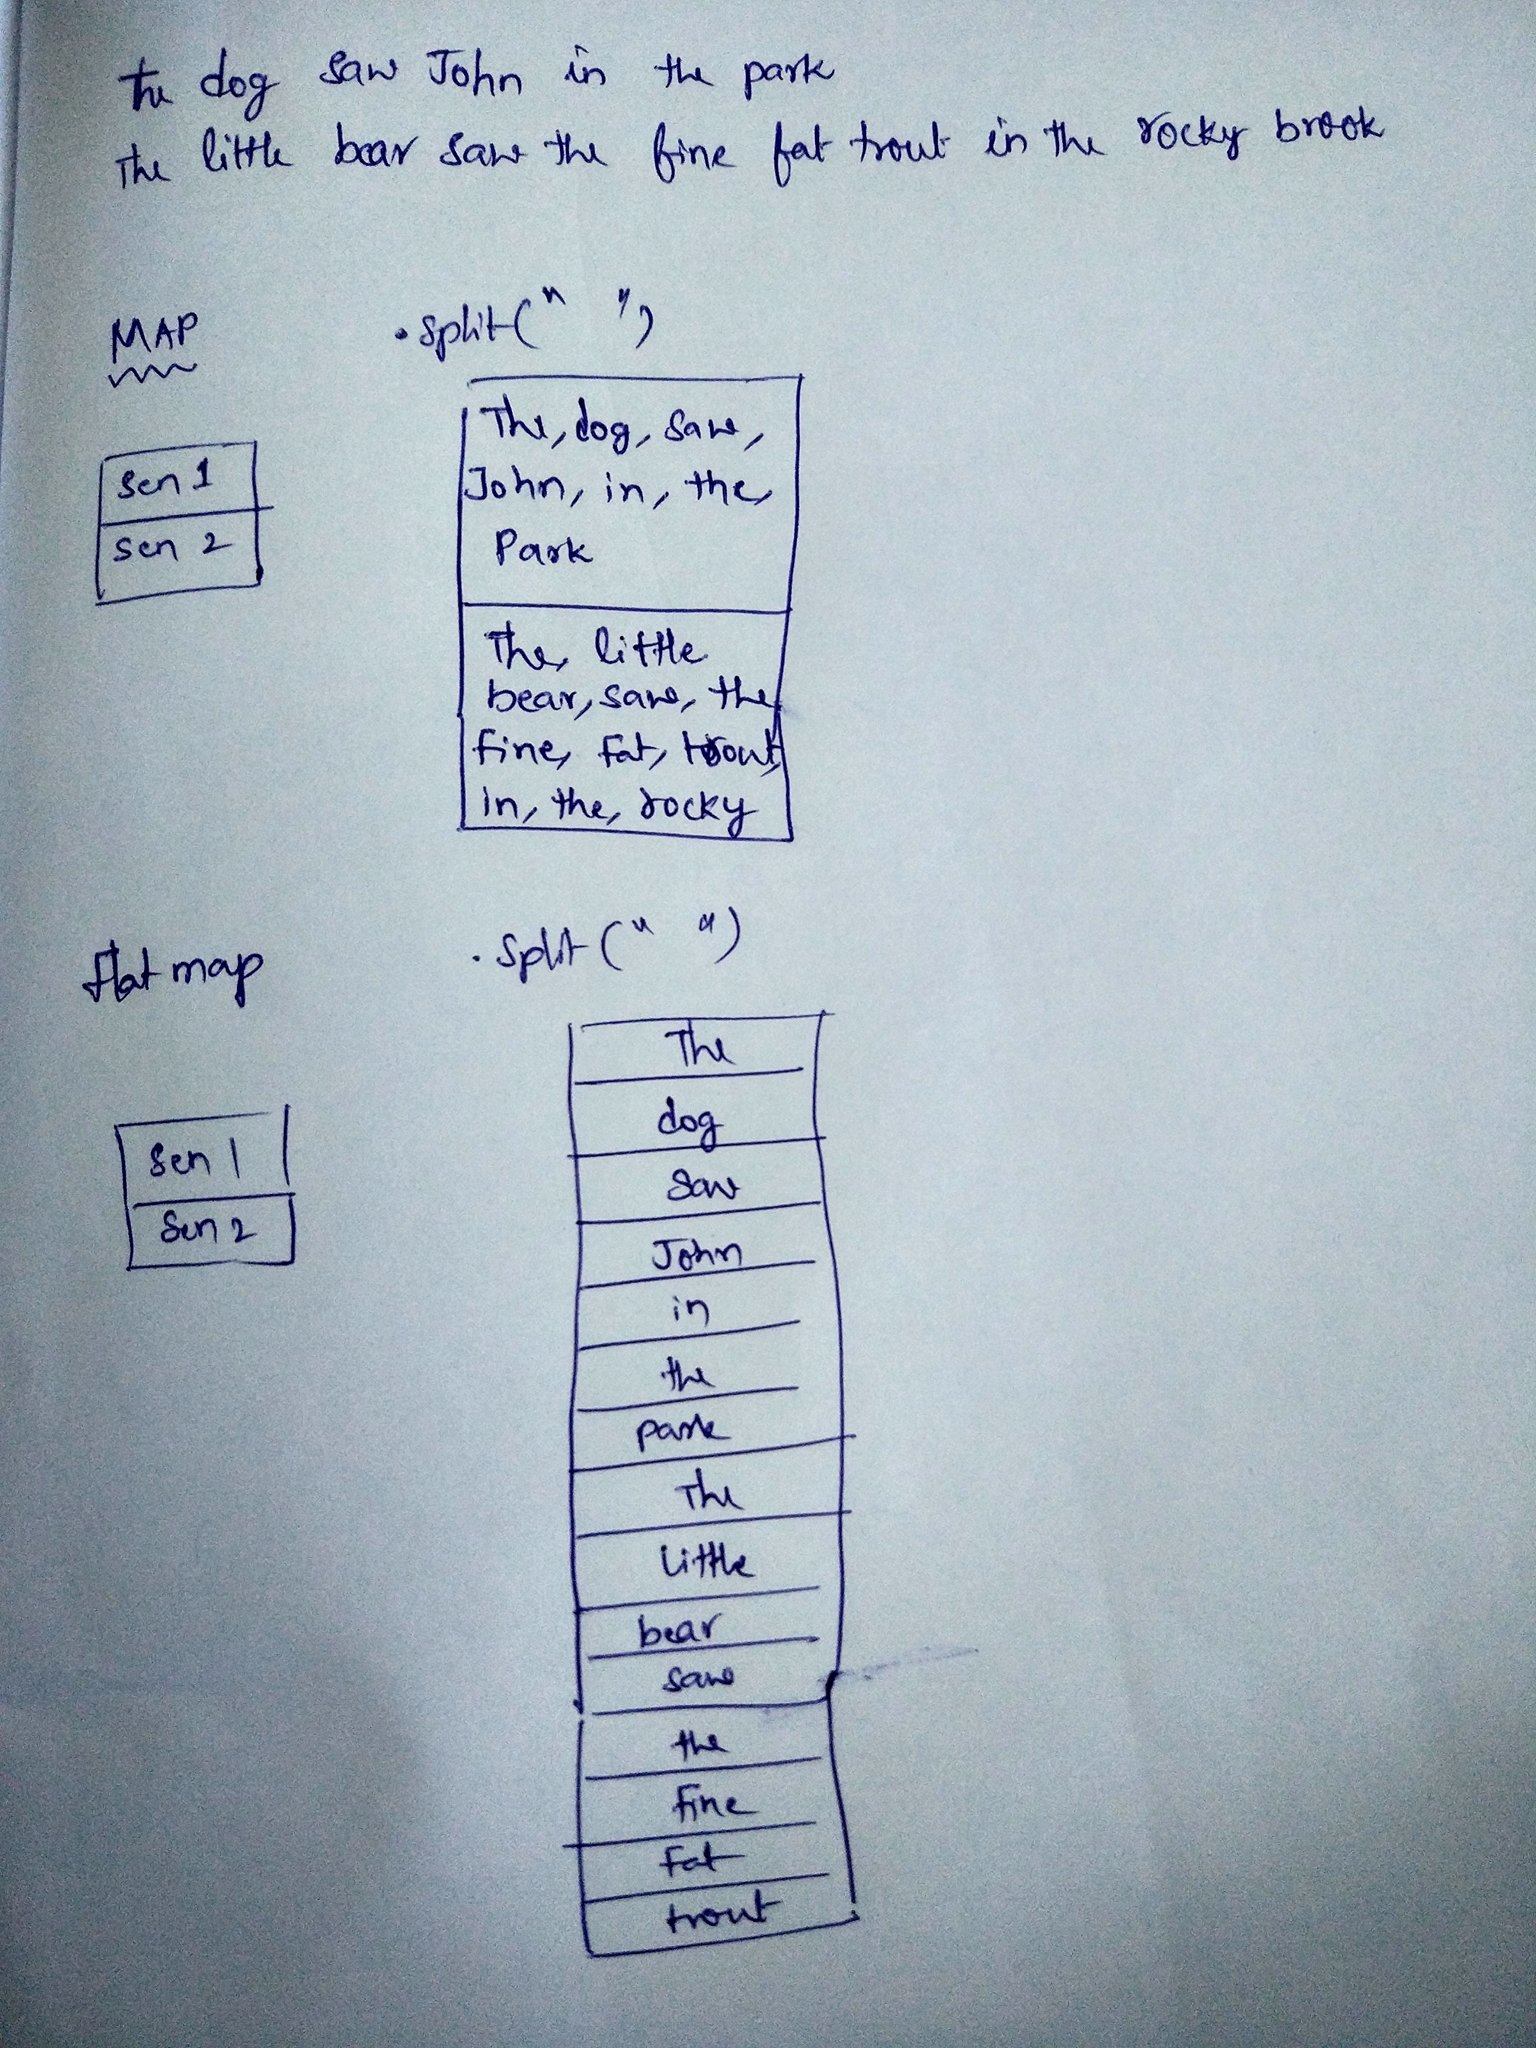 The dog saw John in the park
The little bear saw the fine fat trout in the rocky brook
MAP
.split(" ")
Sen 1
Sen 2
The, dog, saw,
John, in, the,
Park
The, little
bear, saw, the
fine, fat, trout,
in, the, rocky
flat map
.split(" ")
Sen 1
Sen 2
The
dog
saw
John
in
the
park
The
little
bear
saw
the
fine
fat
trout